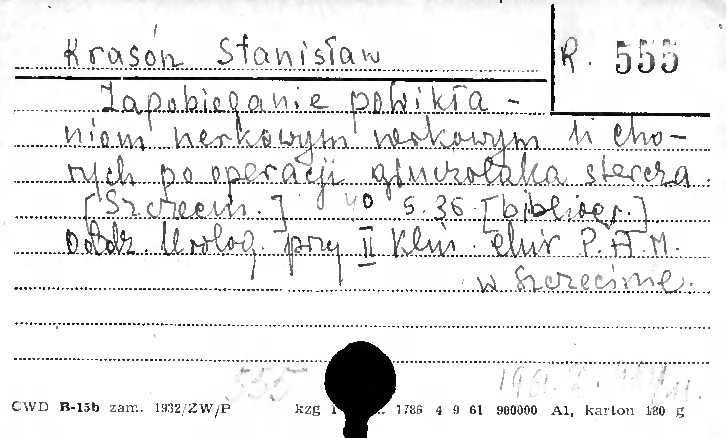 Krasoń Stanisław R. 555
Zapobieganie powikła-
niom nerkowym nerkowym u cho-
rych po operacji gruczolaka stercza.
[Szczecin.] 40 s. 36 [bibliogr.]
Oddz. Urolog. przy II Klin. chir P.A.M.
w Szczecinie.
555 1961.
CWD B-15b zam. 1932/ZW/P kzg 1786 4 9 61 900000 A1, karton 180 g